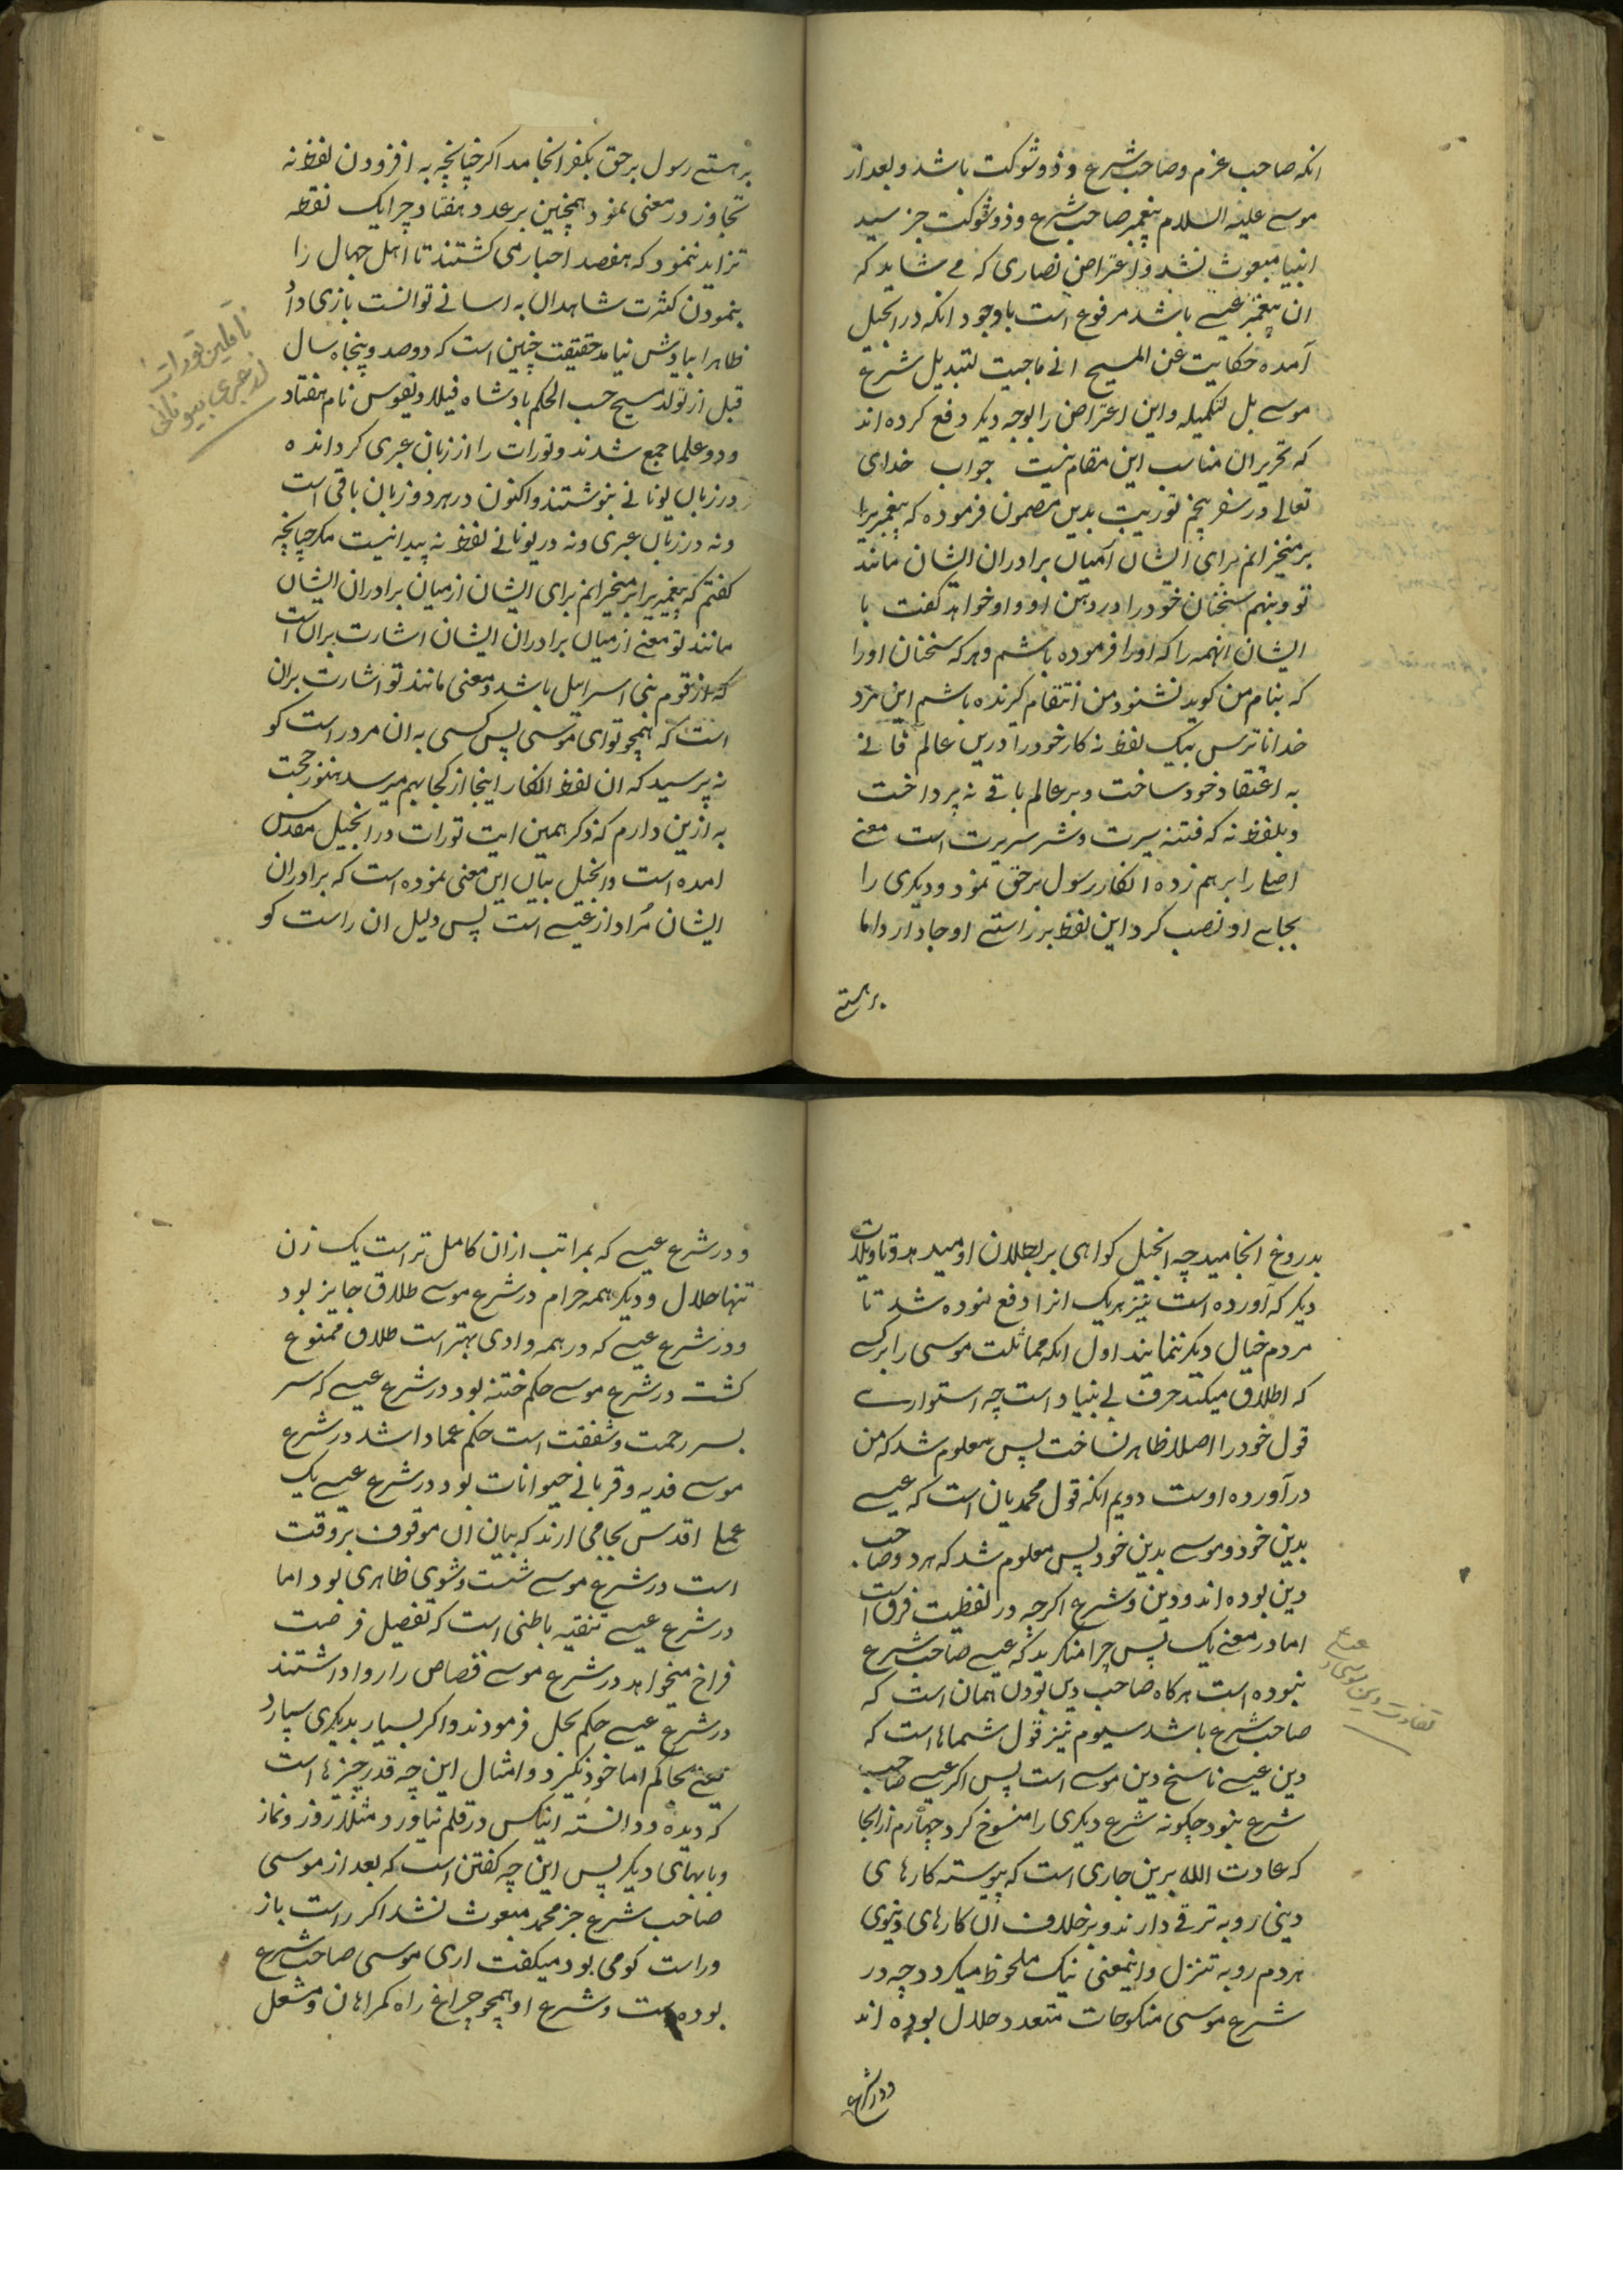 انکه صاحب عزم و صاحب شرع و ذو شوکت باشد و بعد از
موسے علیه السلام پیغمبر صاحب شرع و ذو شوکت جز سید
انبیا مبعوث نشد و اعتراض نصاری که مے شاید که
ان پیغمبر عیسے باشد مرفوع است باوجود انکه در انجیل
آمده حکایت عن المسیح انے ماجیت لتبدیل شرع
موسے بل لتکمیله و این اعتراض را بوجه دیکر دفع کرده اند
که تحریر ان مناسب این مقام نیست جواب خدای
تعالے در سفر پنجم توریت بدین مضمون فرموده که پیغمبریرا
برمنخیزانم برای ایشان از میان برادران ایشان مانند
تو و بنهم سخنان خود را در دهن او و او خواهد کفت با
ایشان انهمه را که او را فرموده باشم و هر که سخنان او را
که بنام من کوید نشنود من انتقام کیرنده باشم این مرد
خدا ناترس بیک لفظ نه کار خود را درین عالم فانے
به اعتقاد خود ساخت و بر عالم باقے نه پرداخت
و بلفظ نه که فتنه سیرت و شر سریرت است معنے
اصل را برهم زده انکار رسول برحق نمود و دیکری را
بجاے او نصب کرد این لفظ بر راستے او جا دارد اما
برهستے
برهستے رسول برحق بکفر انجامد اکر چنانچه به افزودن لفظ نه
تجاوز در معنی نمود همچنین بر عدد هفتاد چرا یک نقطه
تزاید ننمود که هفصد احبار می کشتند تا اهل جهال را
بنمودن کثرت شاهدان به اسانے توانست بازی داد
ظاهرا بیادش نیامد حقیقت چنین است که دوصد و پنجاه سال
قبل از تولد مسیح حسب الحکم بادشاه فیلادیقوس نام هفتاد
و دو علما جمع شدند و تورات را از زبان عبری کرداند ه
در زبان یونانے بنوشتند و اکنون در هر دو زبان باقی است
و نه در زبان عبری و نه در یونانے لفظ نه پیدا نیست مکر چنانچه
کفتم که پیغمبریرا برمنخیزانم برای ایشان از میان برادران ایشان
مانند تو معنے از میان برادران ایشان اشارت بران است
که از قوم بنی اسراییل باشد و معنی مانند تو اشارت بران
است که همچو تو ای موسی پس کسی به ان مرد راست کو
نه پرسید که ان لفظ انکار اینجا از کجا بهم میرسد هنوز حجت
به ازین دارم که ذکر همین ایت تورات در انجیل مقدس
امده است و انجیل بیان این معنی نموده است که برادران
ایشان مراد از عیسے است پس دلیل ان راست کو
ناقلین تورات
از عبری بیونانی
بدروغ انجامید چه انجیل کواهی بر بطلان او میدهد و تاویلات
دیکر که آورده است نیز هریک انرا دفع نموده شد تا
مردم خیال دیکر ننمایند اول انکه مماثلت موسی را بر کسے
که اطلاق میکند حرف بے بنیاد است چه استوارے
قول خود را اصلا ظاهر نساخت پس معلوم شد که من
درآورده اوست دویم انکه قول محمدیان است که عیسے
بدین خود و موسے بدین خود پس معلوم شد که هر دو صاحب
دین بوده اند و دین و شرع اکرچه در لفظیت فرق است
اما در معنے یک پس چرا منکر بد که عیسے صاحب شرع
نبوده است هرکاه صاحب دین بودن همان است که
صاحب شرع باشد سیوم نیز قول شماها است که
دین عیسے ناسخ دین موسے است پس اکر عیسے صاحب
شرع نبود چکونه شرع دیکری را منسوخ کرد چهارم ازانجا
که عادت الله برین جاری است که پیوسته کارهای
دینی رو به ترقے دارند و برخلاف ان کارهای دنیوی
هر دم رو به تنزل و اینمعنی نیک ملحوظ میکردد چه در
شرع موسی منکوحات متعدد حلال بوده اند
تفاوت دین موسی و
عیسے
و در شرع
و در شرع عیسے که بمراتب ازان کامل تر است یک زن
تنها حلال و دیکر همه حرام در شرع موسے طلاق جایز بود
و در شرع عیسے که در همه وادی بهتر است طلاق ممنوع
کشت در شرع موسے حکم ختنه بود در شرع عیسے که سر
بسر رحمت و شفقت است حکم عماد اشد در شرع
موسے فدیه و قربانے حیوانات بود در شرع عیسے یک
عمل اقدس بجا می ارند که بیان ان موقوف بر وقت
است در شرع موسے شست و شوی ظاهری بود اما
در شرع عیسے تنقیه باطنی است که تفصیل فرصت
فراخ میخواهد در شرع موسے قصاص را روا داشتند
در شرع عیسے حکم بحل فرمودند و اکر بسیار بدیکری سپارد
یعنے بحاکم اما خود نکیرد و امثال این چه قدر چیزها است
که دیده و دانسته اینکس در قلم نیاورد مثلا روزه و نماز
و بابهای دیکر پس این چه کفتن است که بعد از موسی
صاحب شرع جز محمد مبعوث نشد اکر راست باز
و راست کو می بود میکفت اری موسی صاحب شرع
بوده است و شرع او همچو چراغ راه کمراهان و مشعل